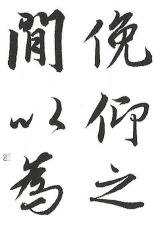 俛仰之
間以為